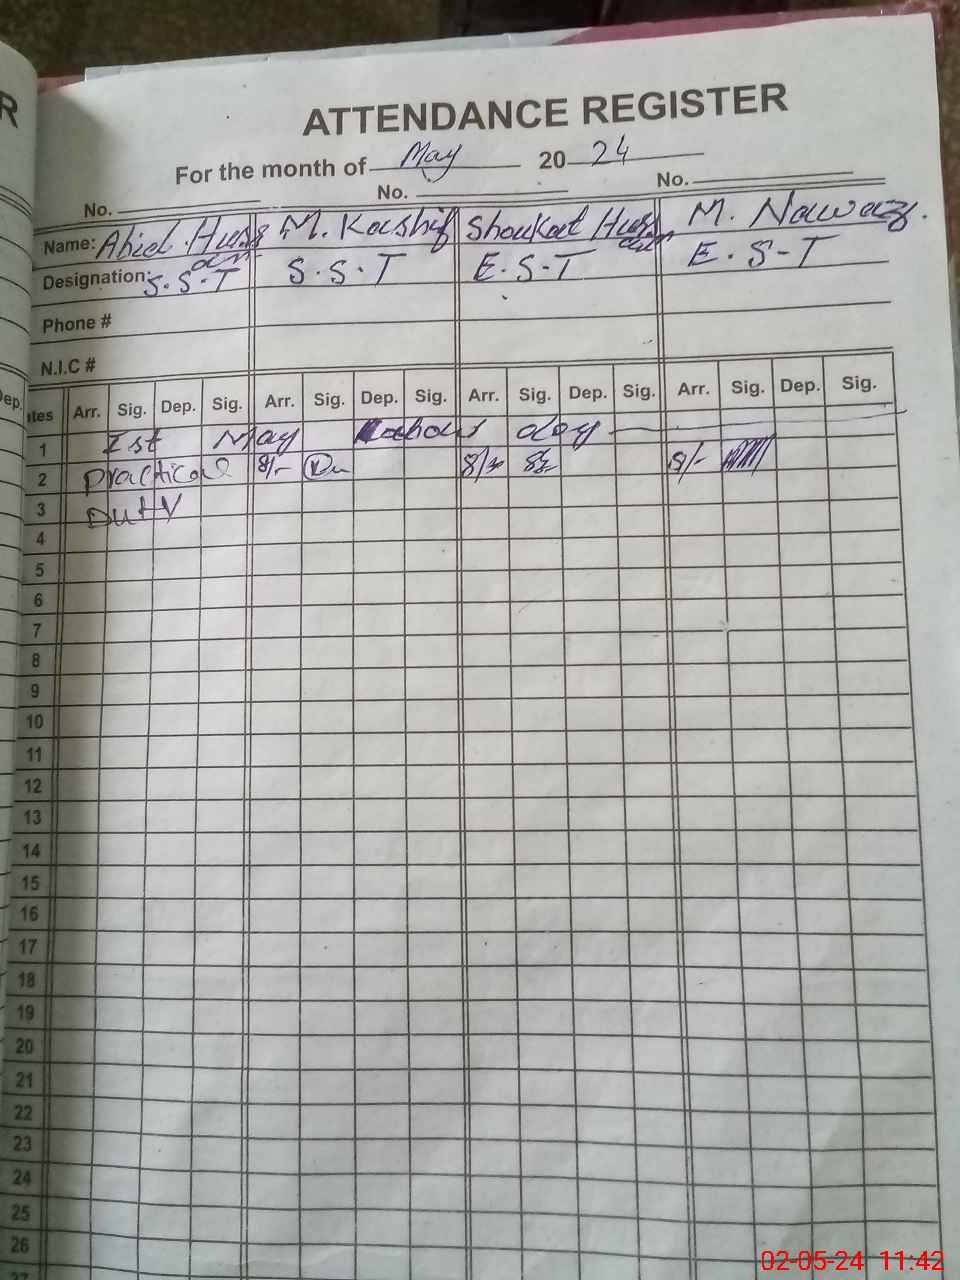 R
ATTENDANCE REGISTER
For the month of May 2024
No. No. No.
Name: Abid Hussain M. Kashif Shoukat Hussain M. Nawaz.
Designation: S.S.T S.S.T E.S.T E.S-T
Phone #
N.I.C #
Dep. ites Arr. Sig. Dep. Sig. Arr. Sig. Dep. Sig. Arr. Sig. Dep. Sig. Arr. Sig. Dep. Sig.
1 Ist May day
2 Practical 8/- 8/- 8/-
3 Duty
4
5
6
7
8
9
10
11
12
13
14
15
16
17
18
19
20
21
22
23
24
25
26
27
02-05-24 11:42